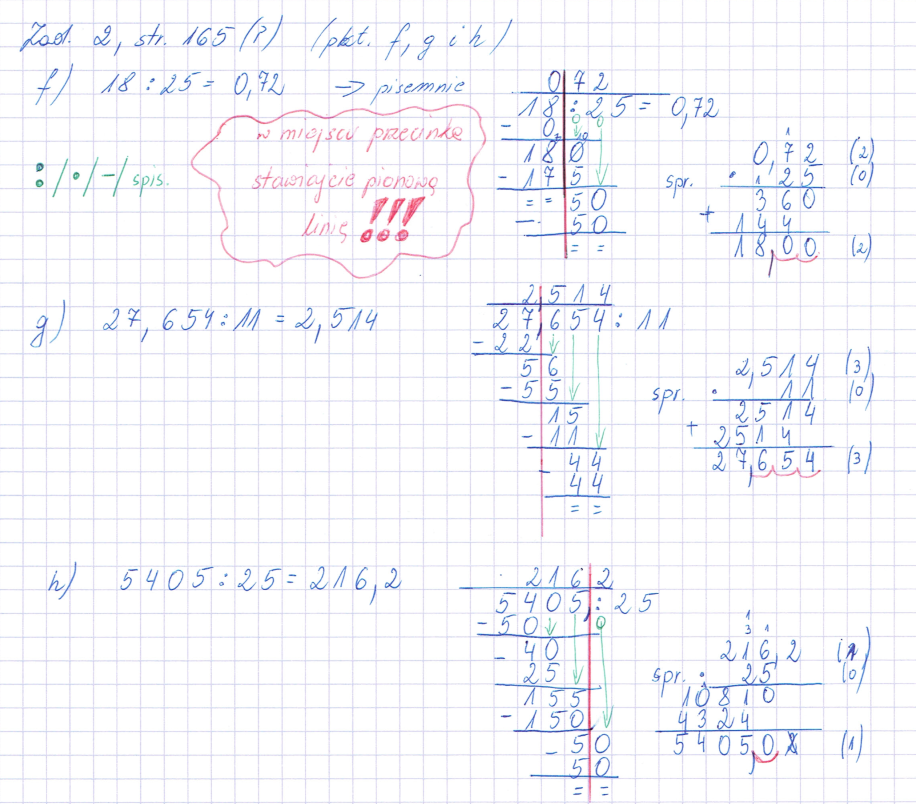 Zad. 2, str. 165 (?) (pkt. f, g i h)
f) 18 : 25 = 0,72 → pisemnie
w miejscu przecinka
stawiajcie pionową
linię !!!
: / • / – / spis.
0 72
18 : 25 = 0,72
- 0
180
- 175
= = 50
- 50
= =
spr.
1
0,72 (2)
• 125 (0)
360
+ 144
18,00 (2)
g) 27,654 : 11 = 2,514
2,514
27,654 : 11
- 22
56
- 55
15
- 11
- 44
44
= =
spr.
2,514 (3)
• 11 (0)
2514
+ 2514
27,654 (3)
h) 5405 : 25 = 216,2
216 2
5405, : 25
- 50 0
- 40
25
155
- 150
- 50
50
= =
spr.
1
3 1
216,2 (1)
• 25 (0)
10810
4324
5405,0 (1)